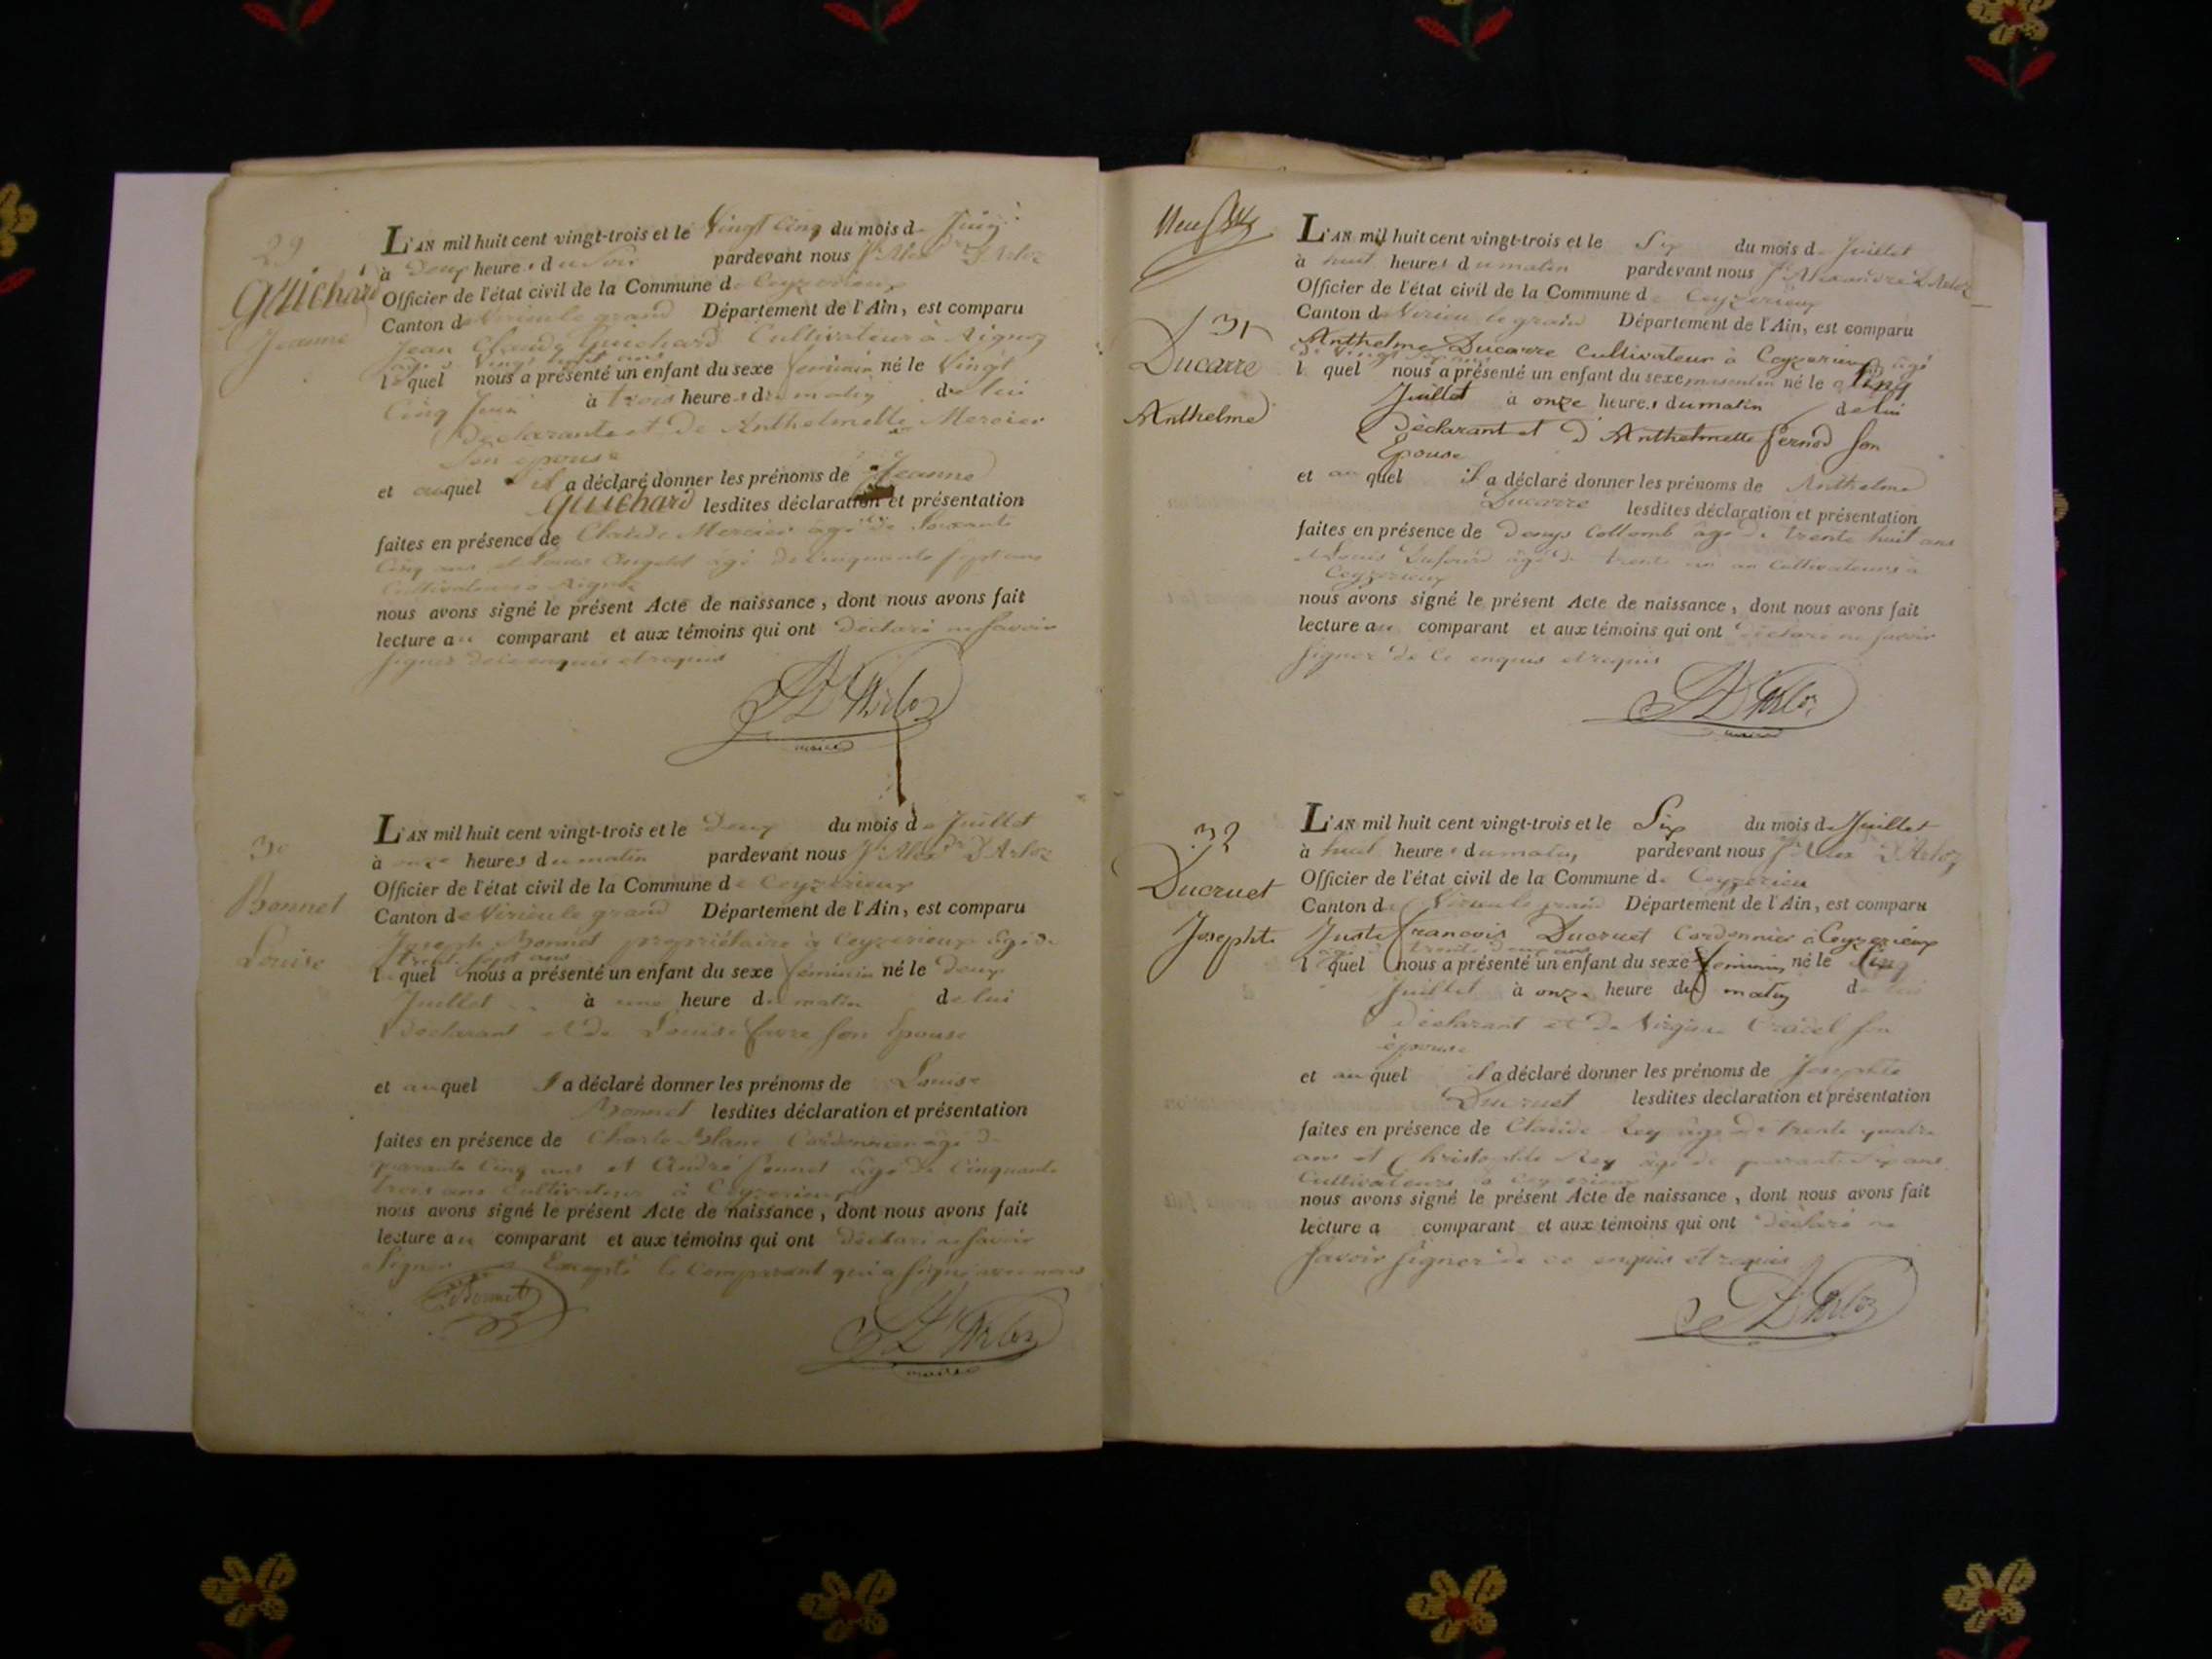 29
Guichard
Jeanne
L'AN mil huit cent vingt-trois et le Vingt Cinq du mois de Juin
à Deux heures du Soir pardevant nous J. Alexdre D'Arloz
Officier de l'état civil de la Commune de Ceyzerieux
Canton de Virieu le grand Département de l'Ain, est comparu
Jean Claude Guichard Cultivateur à Aignoz
âgé de Vingt huit ans
lequel nous a présenté un enfant du sexe féminin né le Vingt
Cinq Juin à trois heures du matin de lui
Déclarant et de Anthelmette Mercier
Son épouse
et auquel il a déclaré donner les prénoms de Jeanne
Guichard lesdites déclaration et présentation
faites en présence de Claude Mercier âgé de Soixante
Cinq ans et âgé de cinquante sept ans
Cultivateurs à Aignoz
nous avons signé le présent Acte de naissance, dont nous avons fait
lecture au comparant et aux témoins qui ont déclaré ne savoir
signer de ce enquis et requis
D'Arloz
maire
30
Bonnet
Louise
L'AN mil huit cent vingt-trois et le Deux du mois de Juillet
à onze heures du matin pardevant nous J. Alexdre D'Arloz
Officier de l'état civil de la Commune de Ceyzerieux
Canton de Virieu le grand Département de l'Ain, est comparu
Joseph Bonnet propriétaire à Ceyzerieux âgé de
trente sept ans
lequel nous a présenté un enfant du sexe féminin né le deux
Juillet à une heure du matin de lui
Déclarant et de Louise favre son Epouse
et auquel Il a déclaré donner les prénoms de Louise
Bonnet lesdites déclaration et présentation
faites en présence de Charle Blanc Cordonnier âgé de
quarante Cinq ans et André âgé de Cinquante
trois ans Cultivateur à Ceyzerieux
nous avons signé le présent Acte de naissance, dont nous avons fait
lecture au comparant et aux témoins qui ont déclaré ne savoir
Signer Excepté le Comparant qui a signé avec nous
Bonnet
D'Arloz
maire
31
Ducarre
Anthelme
L'AN mil huit cent vingt-trois et le Six du mois de Juillet
à huit heures du matin pardevant nous J. Alexandre D'Arloz
Officier de l'état civil de la Commune de Ceyzerieux
Canton de Virieu le grand Département de l'Ain, est comparu
Anthelme Ducarre Cultivateur à Ceyzerieux âgé
de Vingt ans
lequel nous a présenté un enfant du sexe masculin né le Cinq
Juillet à onze heures du matin de lui
Déclarant et d'Anthelmette fernod son
Epouse
et auquel il a déclaré donner les prénoms de Anthelme
Ducarre lesdites déclaration et présentation
faites en présence de Denys Collomb âgé de trente huit ans
et Louis Dufour âgé de trente un an Cultivateurs à
Ceyzerieux
nous avons signé le présent Acte de naissance, dont nous avons fait
lecture au comparant et aux témoins qui ont déclaré ne savoir
signer de ce enquis et requis
D'Arloz
maire
32
Ducruet
Josephte
L'AN mil huit cent vingt-trois et le Six du mois de Juillet
à huit heures du matin pardevant nous J. Alexdre D'Arloz
Officier de l'état civil de la Commune de Ceyzerieu
Canton de Virieu le grand Département de l'Ain, est comparu
Juste francois Ducruet Cordonnier à Ceyzerieux
âgé de trente deux ans
lequel nous a présenté un enfant du sexe féminin né le Cinq
Juillet à onze heure du matin de lui
Déclarant et de Virginie son
épouse
et auquel il a déclaré donner les prénoms de Josephte
Ducruet lesdites déclaration et présentation
faites en présence de Claude Rey âgé de trente quatre
ans et Christophle Rey âgé de quarante Six ans
Cultivateurs à Ceyzerieux
nous avons signé le présent Acte de naissance, dont nous avons fait
lecture a comparant et aux témoins qui ont déclaré ne
savoir signer de ce enquis et requis
D'Arloz